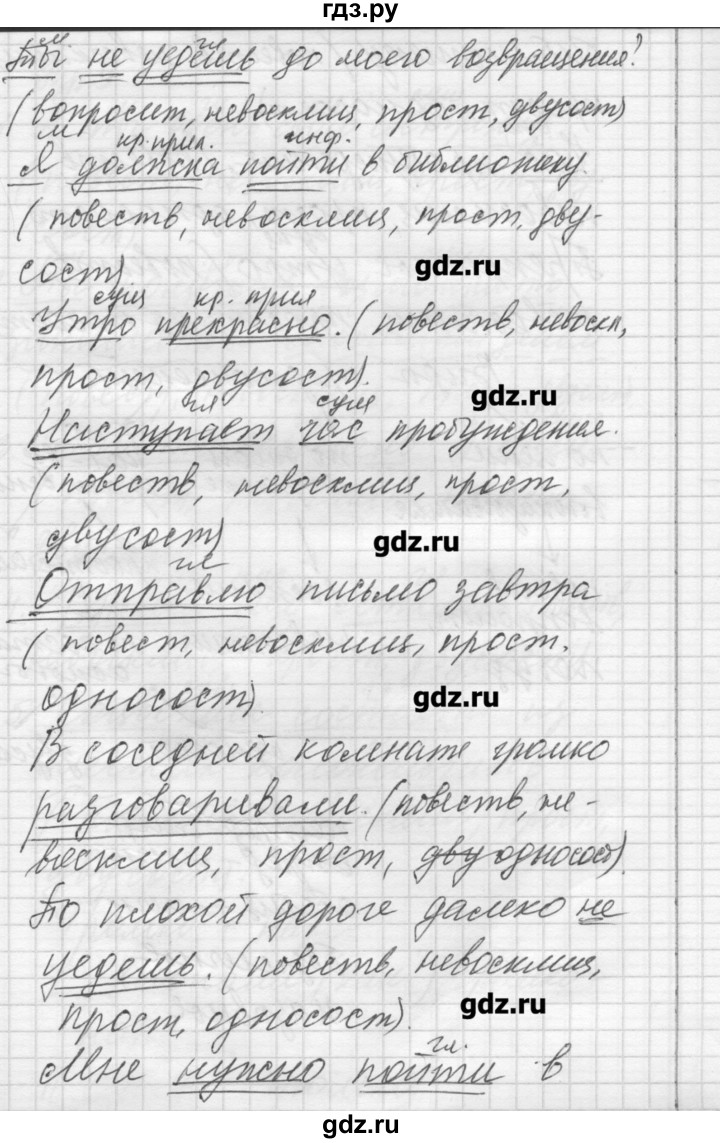 гдз.ру
м. гл
Ты не уедешь до моего возвращения?
(вопросит, невосклиц, прост, двусост)
м кр. прил. инф.
Я должна пойти в библиотеку.
(повеств, невосклиц, прост, дву-
сост)
gdz.ru
сущ кр. прил
Утро прекрасно. (повеств, невоскл,
прост, двусост).
gdz.ru
гл сущ
Наступает час пробуждения.
(повеств, невосклиц, прост,
двусост)
gdz.ru
гл
Отправлю письмо завтра
(повест, невосклиц, прост.
односост).
gdz.ru
В соседней комнате громко
разговаривали. (повеств, не-
восклиц, прост, дву односост).
По плохой дороге далеко не
уедешь. (повеств, невосклиц,
прост, односост).
gdz.ru
гл.
Мне нужно пойти в
gdz.ru